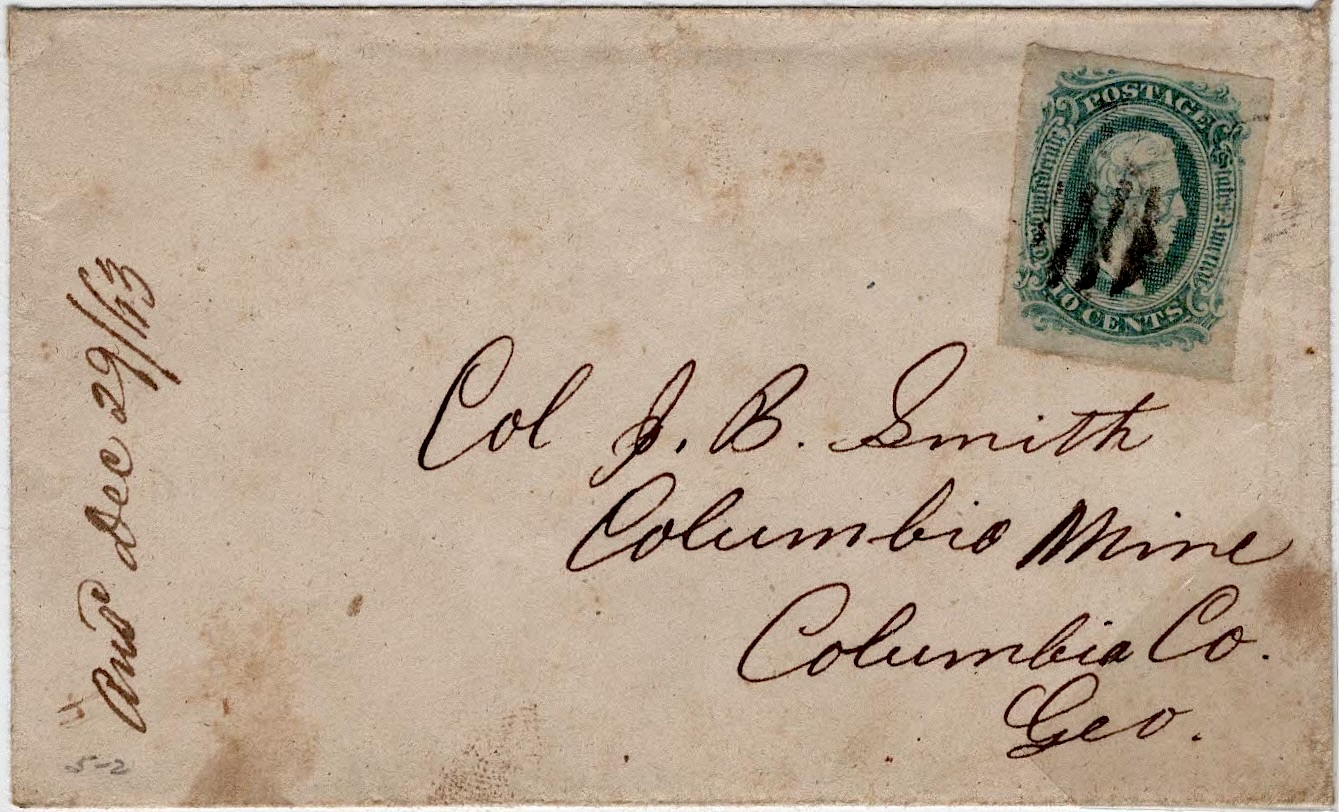 POSTAGE
The Confederate States America
10 CENTS
Col J. B. Smith
Columbia Mine
Columbia Co.
Geo.
Ans Dec 29/63
5-2